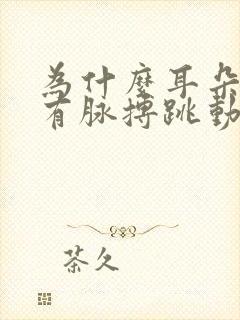 為什麼耳朵
有脉搏跳動
茶久